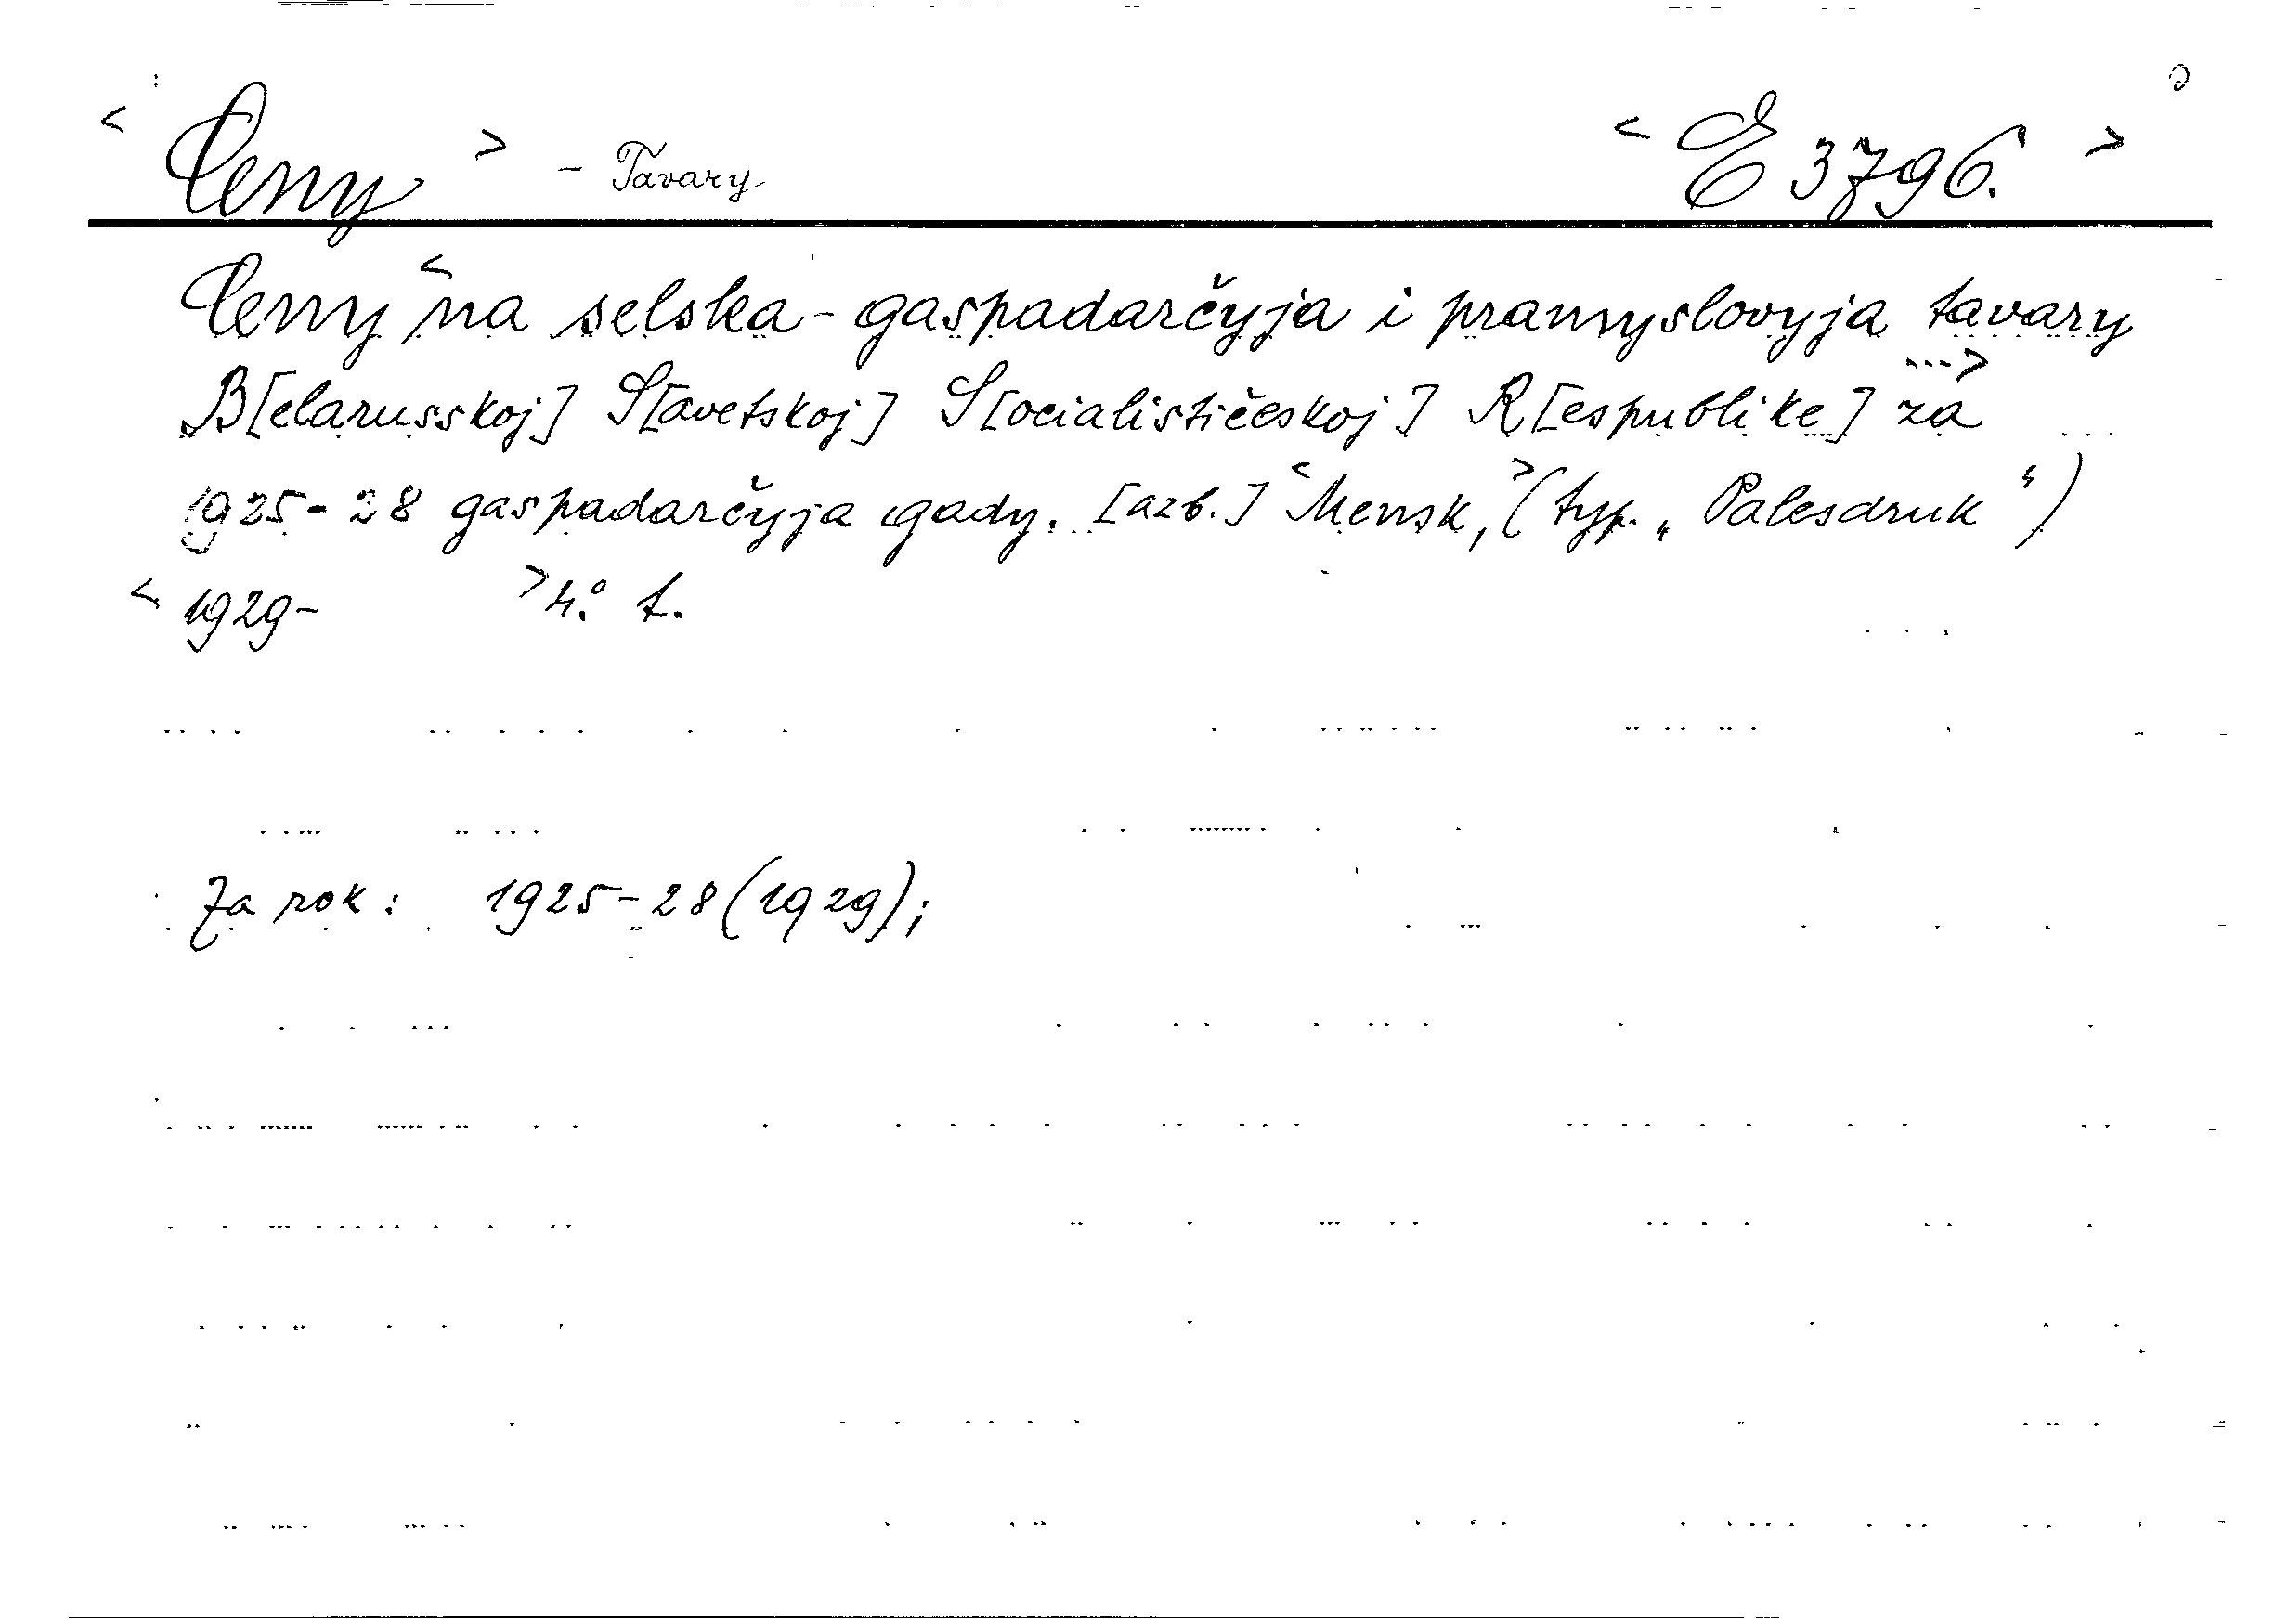 < Ceny > - Tavary < E 3796. >
Ceny < na selska-gaspadarčyja i pramyslovyja tavary
B[elarusskoj] S[avetskoj] S[ocialističeskoj] R[espublike] ...> za
1925-28 gaspadarčyja gady. [azb.] < Mensk, > (typ. „Palesdruk“)
< 1929- > 4.° t.
Za rok: 1925-28(1929);